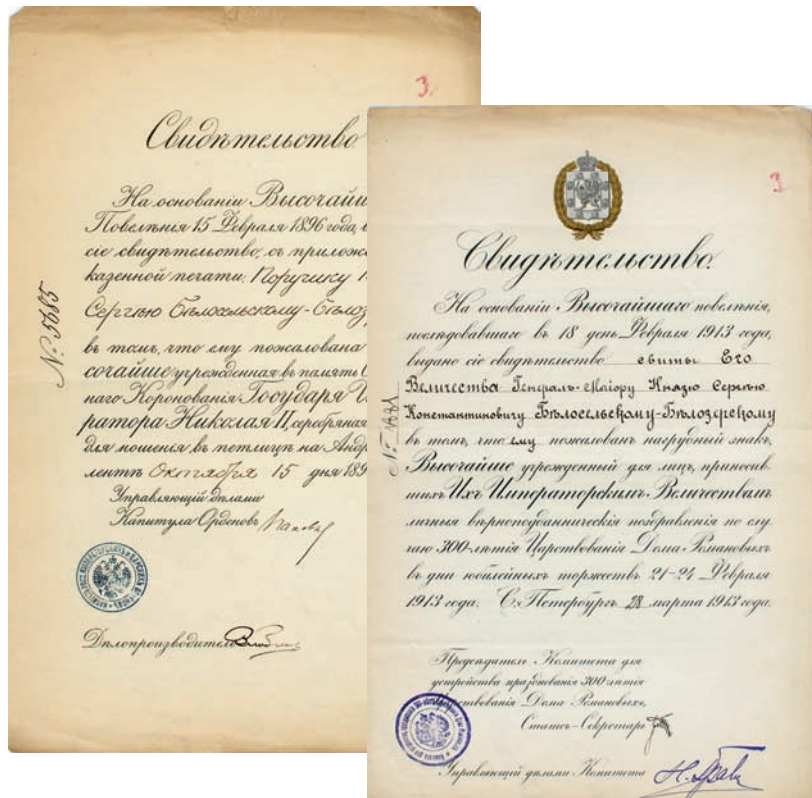 3.
Свидѣтельство.
На основаніи Высочайш
Повелѣнія 15 Февраля 1896 года, в
сіе свидѣтельство, съ прилож
казенной печати, Поручику
Сергѣю Бѣлосельскому-Бѣлоз
въ томъ, что ему пожалована
сочайше учрежденная въ память
наго Коронованія Государя И
ратора Николая II, серебряная
для ношенія въ петлицѣ на Андр
лентѣ Октября 15 дня 189
Управляющій дѣлами
Капитула Орденовъ
Дѣлопроизводитель
№ 5685
3
Свидѣтельство.
На основаніи Высочайшаго повелѣнія,
послѣдовавшаго въ 18 день Февраля 1913 года,
выдано сіе свидѣтельство свиты Его
Величества Генералъ-Маіору Князю Сергѣю
Константиновичу Бѣлосельскому-Бѣлозерскому
въ томъ, что ему пожалованъ нагрудный знакъ,
Высочайше учрежденный для лицъ, приносив
шихъ Ихъ Императорскимъ Величествамъ
личныя вѣрноподданническія поздравленія по слу
чаю 300-лѣтія Царствованія Дома Романовыхъ
въ дни юбилейныхъ торжествъ 21-24 Февраля
1913 года. С.-Петербургъ, 28 марта 1913 года.
Предсѣдатель Комитета для
устройства празднованія 300-лѣтія
ствованія Дома Романовыхъ,
Статсъ-Секретарь
Управляющій дѣлами Комитета